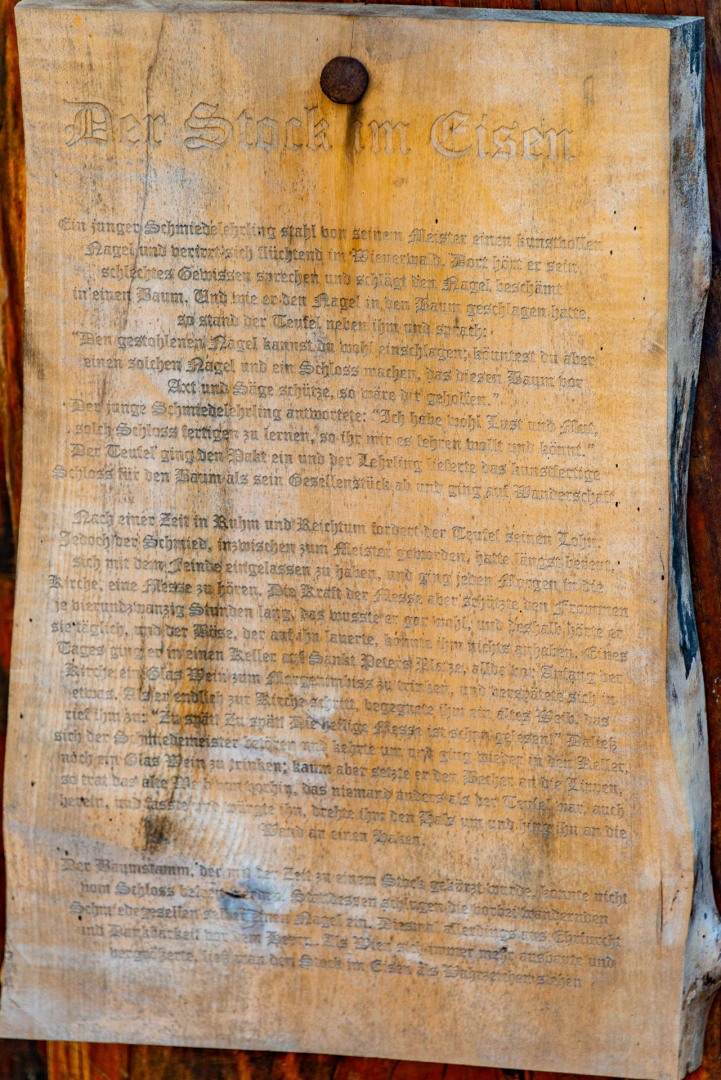 Der Stock im Eisen
Ein junger Schmiedelehrling stahl von seinem Meister einen kunstvollen
Nagel und verirrt sich flüchtend im Wienerwald. Dort hört er sein
schlechtes Gewissen sprechen und schlägt den Nagel beschämt
in einen Baum. Und wie er den Nagel in den Baum geschlagen hatte,
so stand der Teufel neben ihm und sprach:
"Den gestohlenen Nagel kannst du wohl einschlagen; könntest du aber
einen solchen Nagel und ein Schloss machen, das diesen Baum vor
Axt und Säge schütze, so wäre dir geholfen."
Der junge Schmiedelehrling antwortete: "Ich habe wohl Lust und Mut,
solch Schloss fertigen zu lernen, so ihr mir es lehren wollt und könnt."
Der Teufel ging den Pakt ein und der Lehrling lieferte das kunstfertige
Schloss für den Baum als sein Gesellenstück ab und ging auf Wanderschaft.
Nach einer Zeit in Ruhm und Reichtum fordert der Teufel seinen Lohn.
Jedoch der Schmied, inzwischen zum Meister geworden, hatte längst bereut,
sich mit dem Feinde eingelassen zu haben, und ging jeden Morgen in die
Kirche, eine Messe zu hören. Die Kraft der Messe aber schützte den Frommen
je vierundzwanzig Stunden lang, das wusste er gar wohl, und deshalb hörte er
sie täglich, und der Böse, der auf ihn lauerte, konnte ihm nichts anhaben. Eines
Tages ging er in einen Keller auf Sankt Peters Platze, allda vor Anfang der
Kirche ein Glas Wein zum Morgenimbiss zu trinken, und verspätete sich in
etwas. Als er endlich zur Kirche schritt, begegnete ihm ein altes Weib, das
rief ihm zu: "Zu spät! Zu spät! Die heilige Messe ist schon gelesen!" Da ließ
sich der Schmiedemeister betören und kehrte um und ging wieder in den Keller,
noch ein Glas Wein zu trinken; kaum aber setzte er den Becher an die Lippen,
so trat das alte Weib von vorhin, das niemand anders als der Teufel war, auch
herein, und fasste und würgte ihn, drehte ihm den Hals um und hing ihn an die
Wand an einen Haken.
Der Baumstamm, der mit der Zeit zu einem Stock gekürzt wurde, konnte nicht
vom Schloss befreit werden. Stattdessen schlugen die vorbei wandernden
Schmiedegesellen selber einen Nagel ein. Diesmal allerdings aus Ehrfurcht
und Dankbarkeit vor dem Herrn. Als Wien sich immer mehr ausbaute und
vergrößerte, ließ man den Stock im Eisen als Wahrzeichen stehen